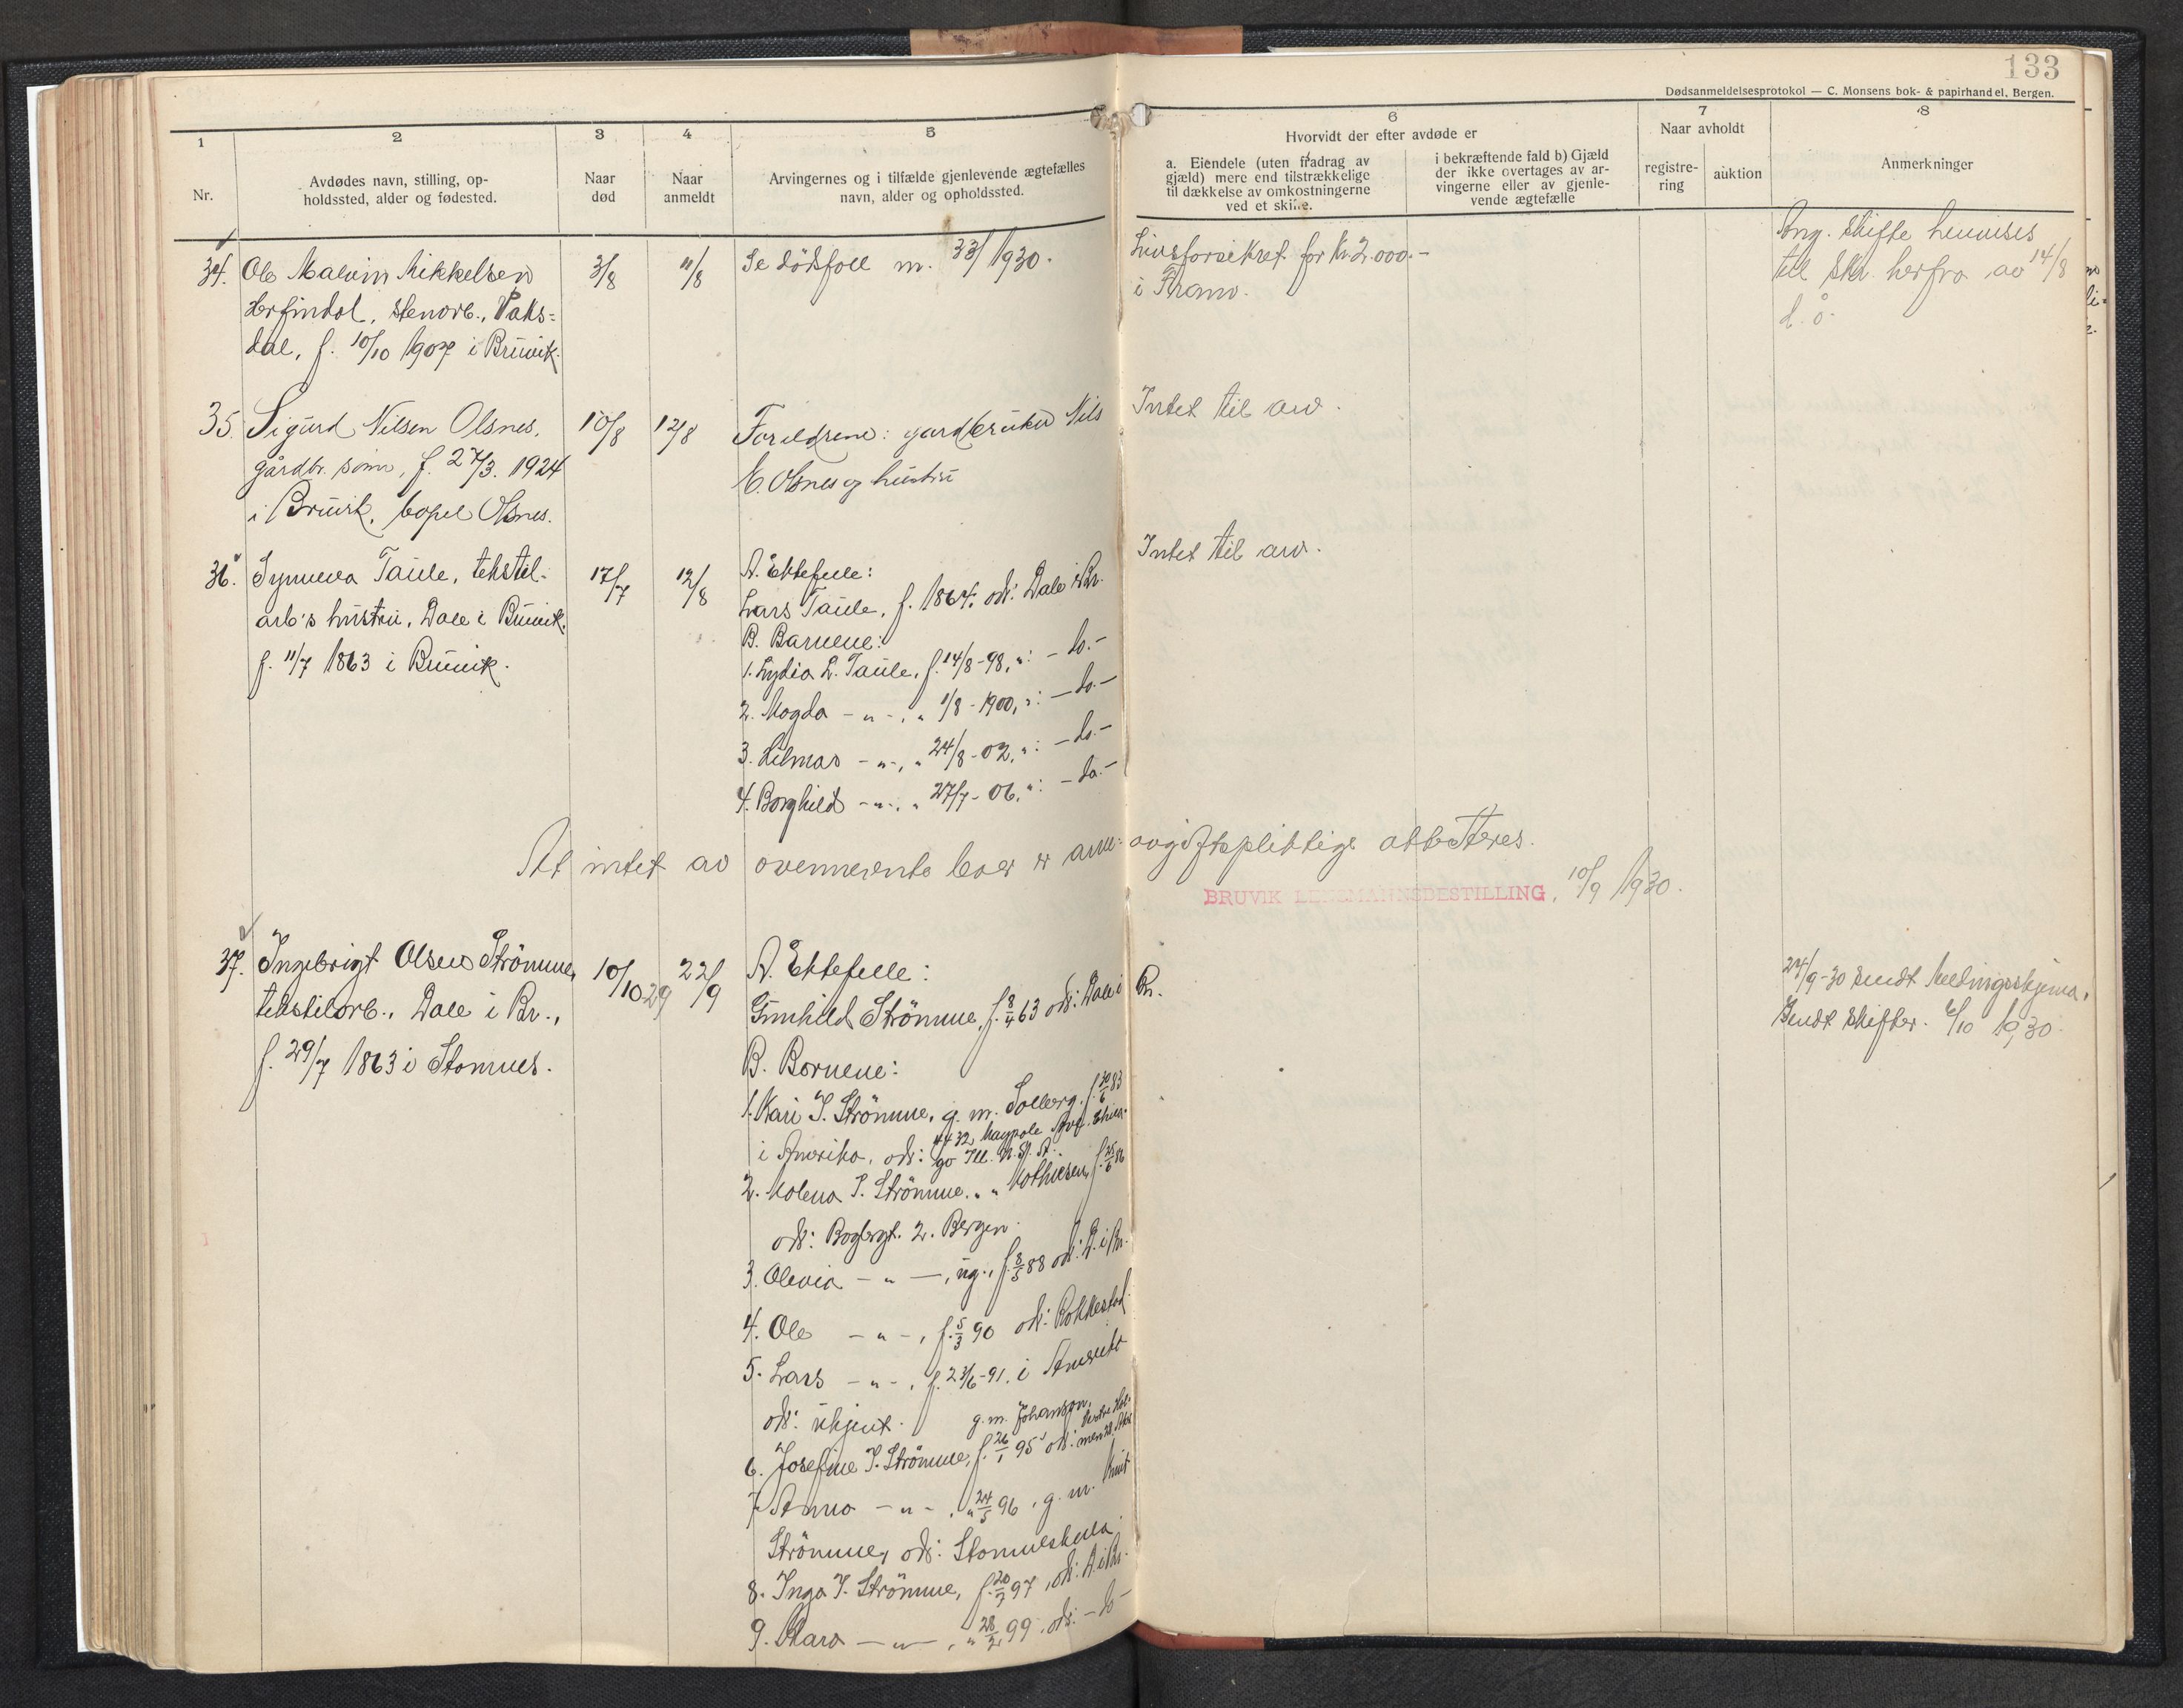 133
Dødsanmeldelsesprotokol — C. Monsens bok- & papirhandel, Bergen.
1
Nr.
2
Avdødes navn, stilling, op-
holdssted, alder og fødested.
3
Naar
død
4
Naar
anmeldt
5
Arvingernes og i tilfælde gjenlevende ægtefælles
navn, alder og opholdssted.
6
Hvorvidt der efter avdøde er
a. Eiendele (uten fradrag av
gjæld) mere end tilstrækkelige
til dækkelse av omkostningerne
ved et skifte.
i bekræftende fald b) Gjæld
der ikke overtages av ar-
vingerne eller av gjenle-
vende ægtefælle
7
Naar avholdt
registre-
ring
auktion
8
Anmerkninger
34. Ole Malvin Mikkelsen
Herfindal, stenarb., Vaks-
dal, f. 10/10 1907 i Bruvik.
3/8
11/8
Se dödsfall nr. 33/1930.
Livsforsikret for kr. 2.000.-
i Fram.
Ang. skifte henvises
til skr. herfra av 14/8
d. å.
35. Sigurd Nilsen Olsnes,
gårdbr. sönn, f. 27/3. 1924
i Bruvik, bopel Olsnes.
10/8
12/8
Foreldrene: gardbruker Nils
E. Olsnes og hustru
Intet til arv.
36. Synneva Taule, tekstil-
arb's hustru, Dale i Bruvik.
f. 11/7 1863 i Bruvik.
17/7
12/8
A. Ektefelle:
Lars Taule, f. 1864. ads: Dale i Br.
B. Barnene:
1. Lydia L. Taule, f. 14/8-98, ": - do. -
2. Magda - " -, " 1/8-1900, ": - do. -
3. Hilmar - " -, " 24/8-02, ": - do. -
4. Borghild - " -, " 27/7-06, ": - do. -
Intet til arv.
At intet av ovennevnte boer er arve-avgiftspliktige attesteres.
BRUVIK LENSMANNSBESTILLING, 10/9 1930.
37. Ingebrigt Olsen Strömme,
tekstilarb., Dale i Br.,
f. 29/7 1863 i Stamnes.
10/10 29
22/9
A. Ektefelle:
Gunhild Strömme, f. 8/4 63 ads: Dale i Br.
B. Barnene:
1. Kari I. Strömme, g. m. Solberg, f. 30/6 83
i Amerika, ads: 4432 Maypole Ave. Chica-
go Ill. U.S.A.
2. Malena I. Strömme, " " Mathiesen, f. 25/6 86
ads: Bogbrgt. 2. Bergen.
3. Olevia - " -, ug., f. 8/5 88 ads: D. i Br.
4. Ole - " -, f. 5/3 90 ads: Rakkestad
5. Lars - " -, f. 23/6-91. i Amerika
ads: ukjent.
g. m. Johanson,
6. Josefine I. Strömme, f. 26/1 95 ads:
7. Anna - " -, " 24/5 96, g. m. Knut
Strömme, ads: Stamneshella
8. Inga I. Strömme, f. 20/7 97, ads: D. i Br.
9. Klara - " -, " 28/2 99, ads: - do -
24/9-30 sendt meldingsskjema.
Sendt skifter. 6/10 1930.